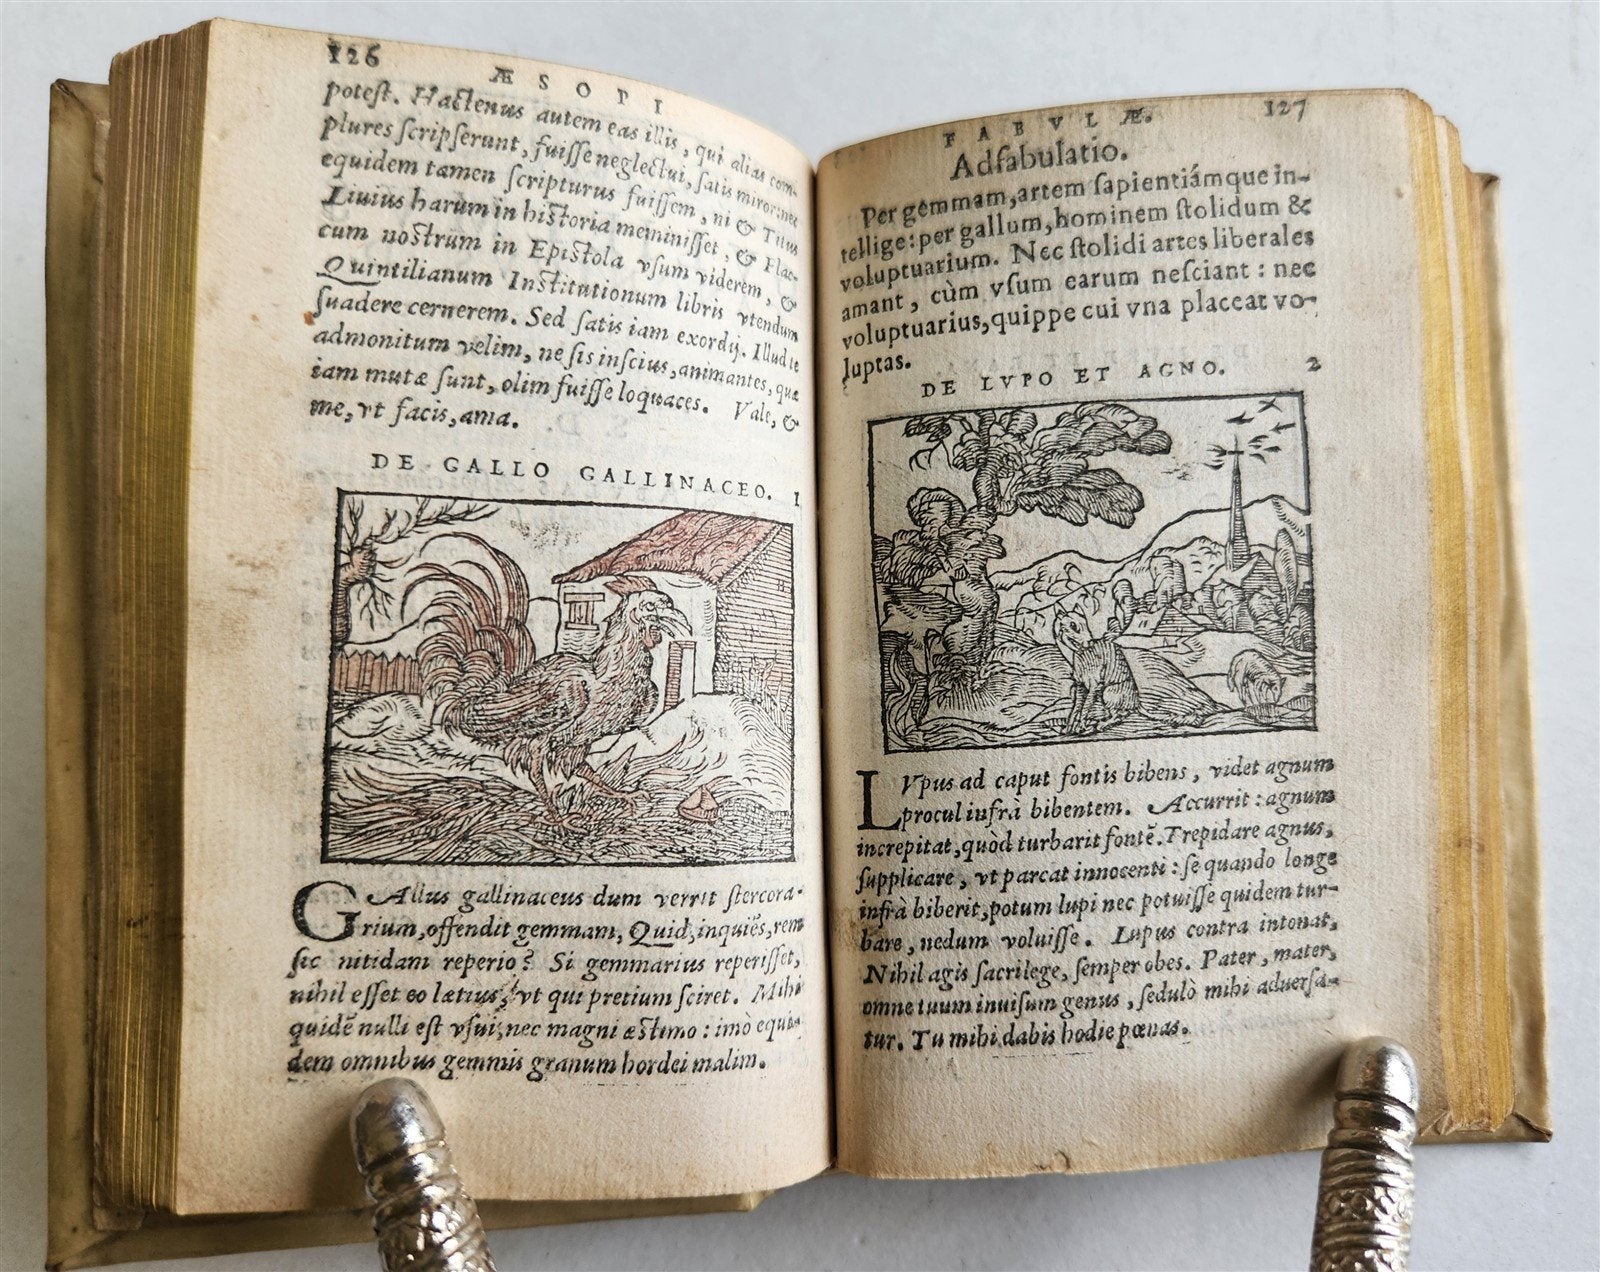 126
ÆSOPI
potest. Hactenus autem eas illis, qui alias com-
plures scripserunt, fuisse neglectui, satis miror: nec
equidem tamen scripturus fuissem, ni & Titus
Liuius harum in historia meminisset, & Flac-
cum nostrum in Epistola vsum viderem, &
Quintilianum Institutionum libris vtendum
suadere cernerem. Sed satis iam exordij. Illud te
admonitum velim, ne sis inscius, animantes, quæ
iam mutæ sunt, olim fuisse loquaces. Vale, &
me, vt facis, ama.
DE GALLO GALLINACEO. 1
GAllus gallinaceus dum verrit stercora-
rium, offendit gemmam, Quid, inquiẽs, rem
sic nitidam reperio? Si gemmarius reperisset,
nihil esset eo lætius, vt qui pretium sciret. Mihi
quidẽ nulli est vsui, nec magni æstimo: imò equi-
dem omnibus gemmis granum hordei malim.
FABVLÆ. 127
Adfabulatio.
Per gemmam, artem sapientiámque in-
tellige: per gallum, hominem stolidum &
voluptuarium. Nec stolidi artes liberales
amant, cùm vsum earum nesciant: nec
voluptuarius, quippe cui vna placeat vo-
luptas.
DE LVPO ET AGNO. 2
LVpus ad caput fontis bibens, videt agnum
procul infrà bibentem. Accurrit: agnum
increpitat, quòd turbarit fontẽ. Trepidare agnus,
supplicare, vt parcat innocenti: se quando longe
infrà biberit, potum lupi nec potuisse quidem tur-
bare, nedum voluisse. Lupus contra intonat,
Nihil agis sacrilege, semper obes. Pater, mater,
omne tuum inuisum genus, sedulò mihi aduersa-
tur. Tu mihi dabis hodie pœnas.